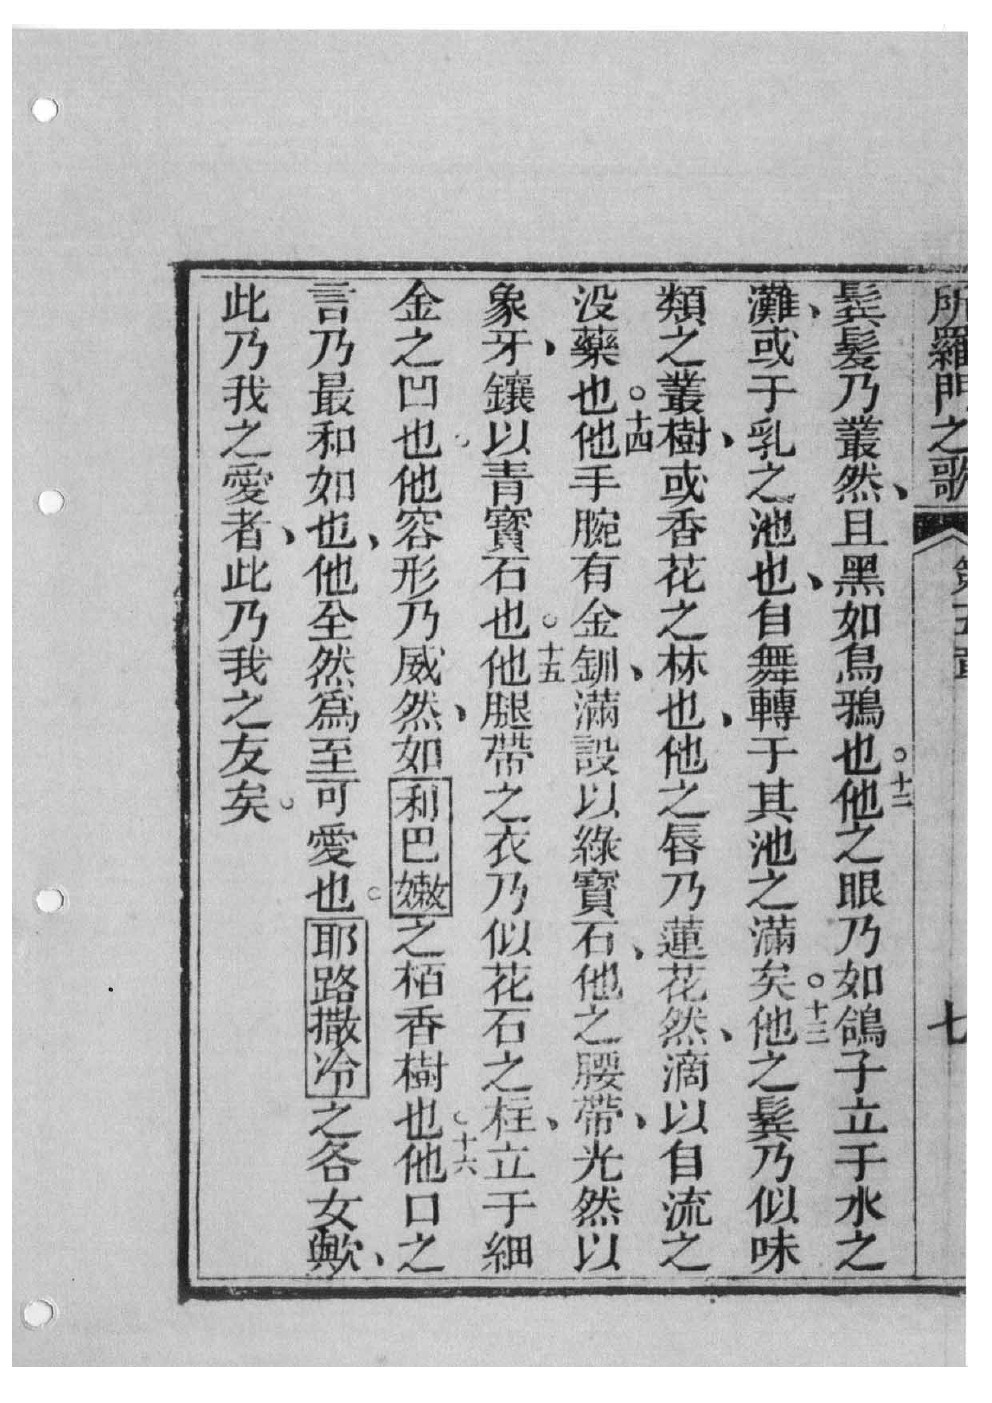 所羅門之歌 第五章 七
鬓髮乃叢然、且黑如烏鴉也。十二他之眼乃如鴿子立于水之
灘、或于乳之池也、自舞轉于其池之滿矣。十三他之鬓乃似味
類之叢樹、或香花之林也、他之唇乃蓮花然、滴以自流之
没藥也。十四他手腕有金釧、滿設以綠寶石、他之腰帶、光然以
象牙、鑲以青寶石也。十五他腿帶之衣乃似花石之柱、立于細
金之凹也。他容形乃威然、如利巴嫩之栢香樹也。十六他口之
言乃最和如也、他全然為至可愛也。耶路撒冷之各女歟、
此乃我之愛者、此乃我之友矣。